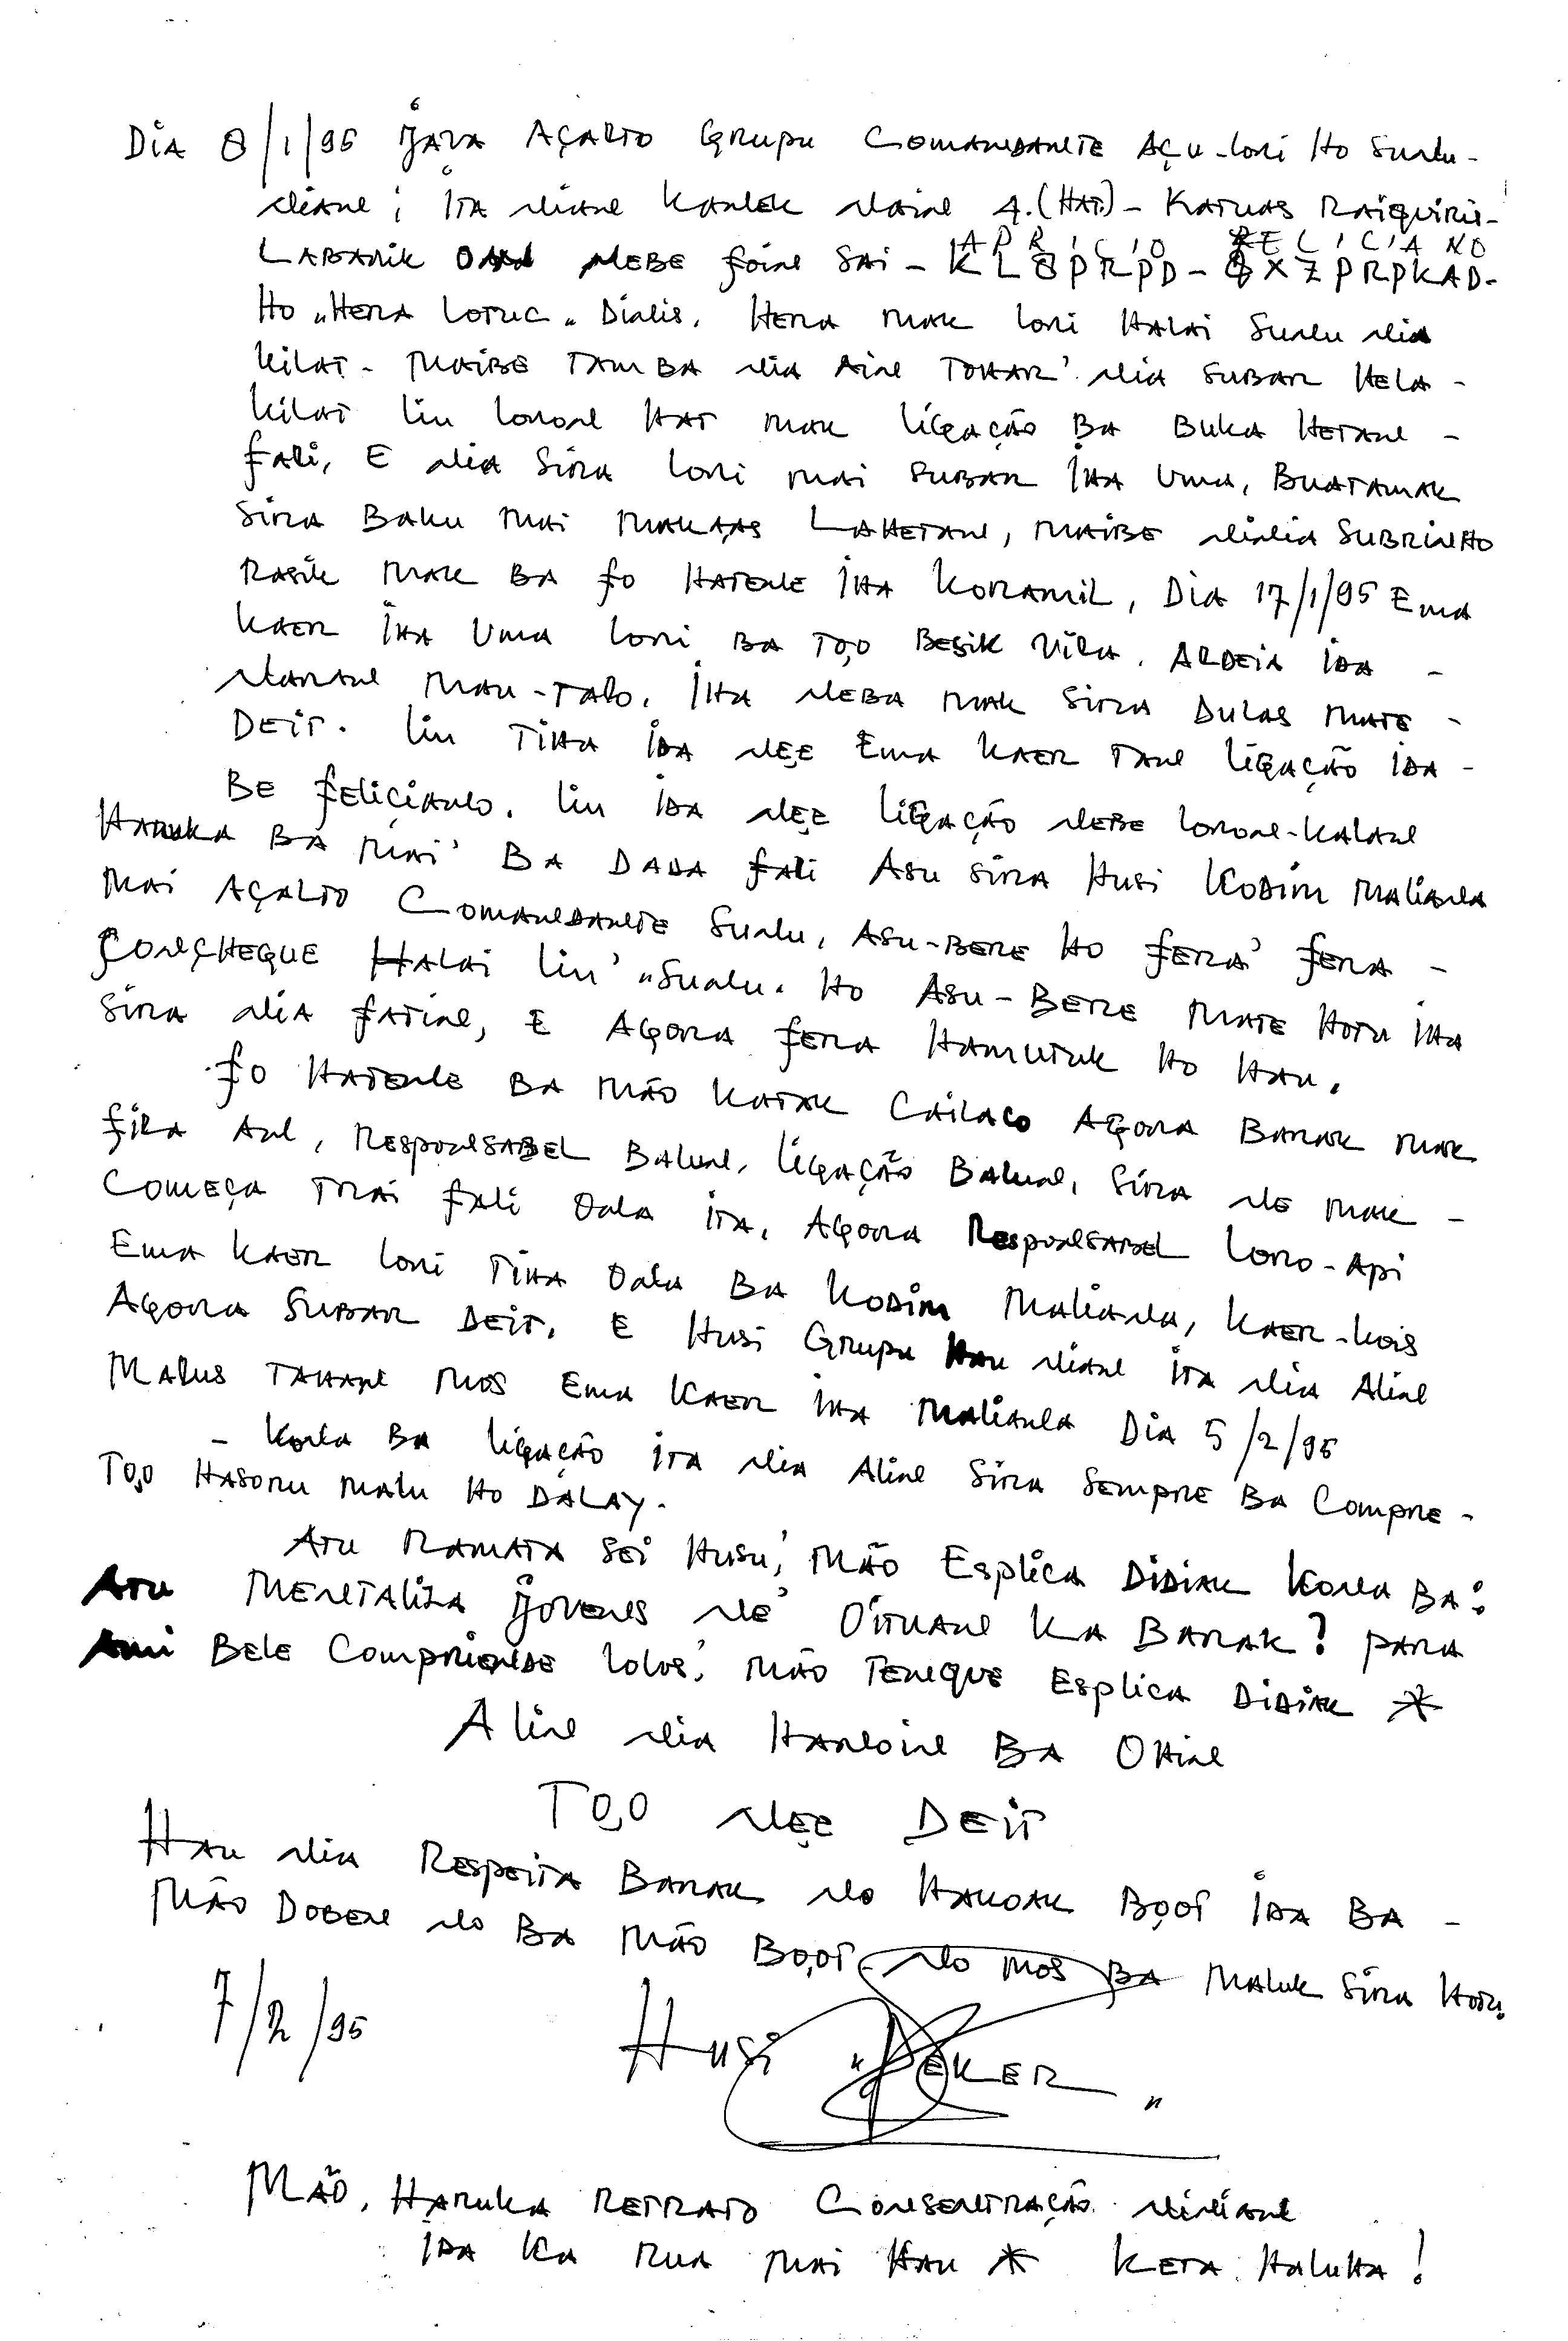 Dia 8/1/95 Java Açalto Grupu Comandante Açu-loni Ho Sunlu-
niane; Ita niane Kanek naine 4.(Hat)- Katuas Raiquiric-
Labarik oan nebe foine Sai - KLBPRPD - QXZPRPKAD-
APRICIO FELICIANO
Ho "Hera Loruc" Dinis. Hera mak lori Halai Sunlu nia
kilat - Maibe tamba nia aine tohar' nia subar hela -
kilat liu loron hat mak ligação ba buka hetane -
fali, e nia sira lori mai subar iha uma, buatamak
sira baku mai makaças lahetane, maibe ninia subrinho
rasik mak ba fo hatene iha Koramil, Dia 17/1/95 Ema
kaer iha uma lori ba to,o besik Vila. Ardeia ida -
naran Mau-talo. Iha neba mak sira dulas mate -
deit. liu tiha ida neçe ema kaer tane ligação ida -
be Feliciano. liu ida neçe ligação nebe lorone-kalane
haruka ba mai' ba dada fali Asu sira husi Kodim Maliana
mai açalto Comandante Sunlu, Asu-Bere ho fera' fera -
çonçheque halai liu' "Sunlu" ho Asu-Bere mate hotu iha
sira nia fatine, e agora fera hamutuk ho hau.
fo hatene ba mão katak Cailaco agora barak mak
fila an, responsabel balune, ligação balune, sira ne mak -
começa trai fali oala ita, agora responsabel Loro-Api
ema kaer lori tiha oala ba Kodim Maliana, kaer-lois
agora subar deit, e husi grupu hau niane ita nia aline
Malus Tahane mos ema kaer iha Maliana Dia 5/2/95
- Kona ba ligação ita nia aline sira sempre ba compre -
to,o hasoru malu ho Dalay.
Atu ramata sei husu; mão esplica didiak kona ba:
Atu mentaliza jovenes ne' oituane ka barak? para
Ami bele compriende lolos; mão teneque esplica didiak *
Aline nia hanoine ba ohine
To,o neçe deit
Hau nia respeita barak no hakoak boçot ida ba -
mão Doben no ba mão boçot no mos ba maluk sira hotu.
7/2/95 Husi "Deker"
Mão, haruka retrato consentração niniane
ida ka rua mai hau * Keta haluha!